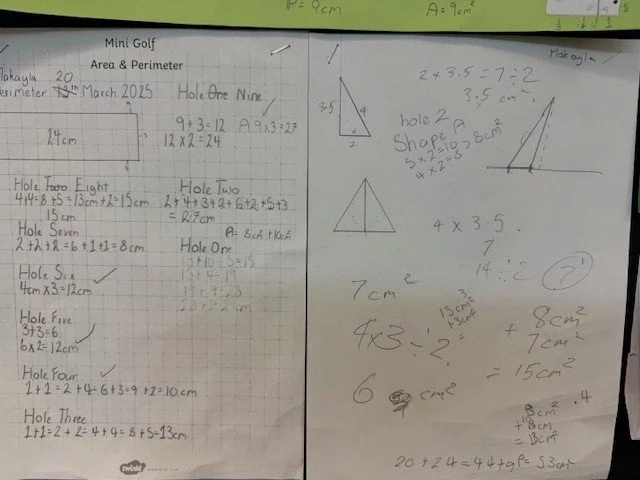 P = 9cm
A = 9cm²
Mini Golf
Area & Perimeter
Makayla 20
Perimeter 13th March 2025
24cm
Hole One Nine
9+3=12 A 9x3=27
12x2=24
Hole Two Eight
4+4=8+5=13cm+2=15cm
15cm
Hole Seven
2+2+2=6+1+1=8cm
Hole Six
4cm x3=12cm
Hole Five
3+3=6
6x2=12cm
Hole Four
1+1=2+4=6+3=9+2=10cm
Hole Three
1+1=2+2=4+4=8+5=13cm
Hole Two
2+4+3+2+6+2+5+3
=27cm
A= 8cm + 10cm
Hole One
15+4=19
19+9=28
twinkl
Makayla
2 x 3.5 = 7 ÷ 2
3.5 cm²
3.5 4
2
hole 2
Shape A
5x2=10 > 8cm²
4x2=8
4 x 3.5
7
14 ÷ 2 7
7cm²
15cm²
+3cm²
4x3 ÷ 2 =
6 cm²
+ 8cm²
7cm²
= 15cm²
.4
20+24=44+9=53cm²